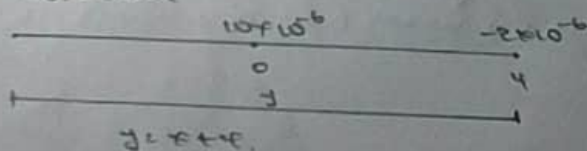 10×10⁻⁶ -2×10⁻⁶
0 4
y
y = x+4.